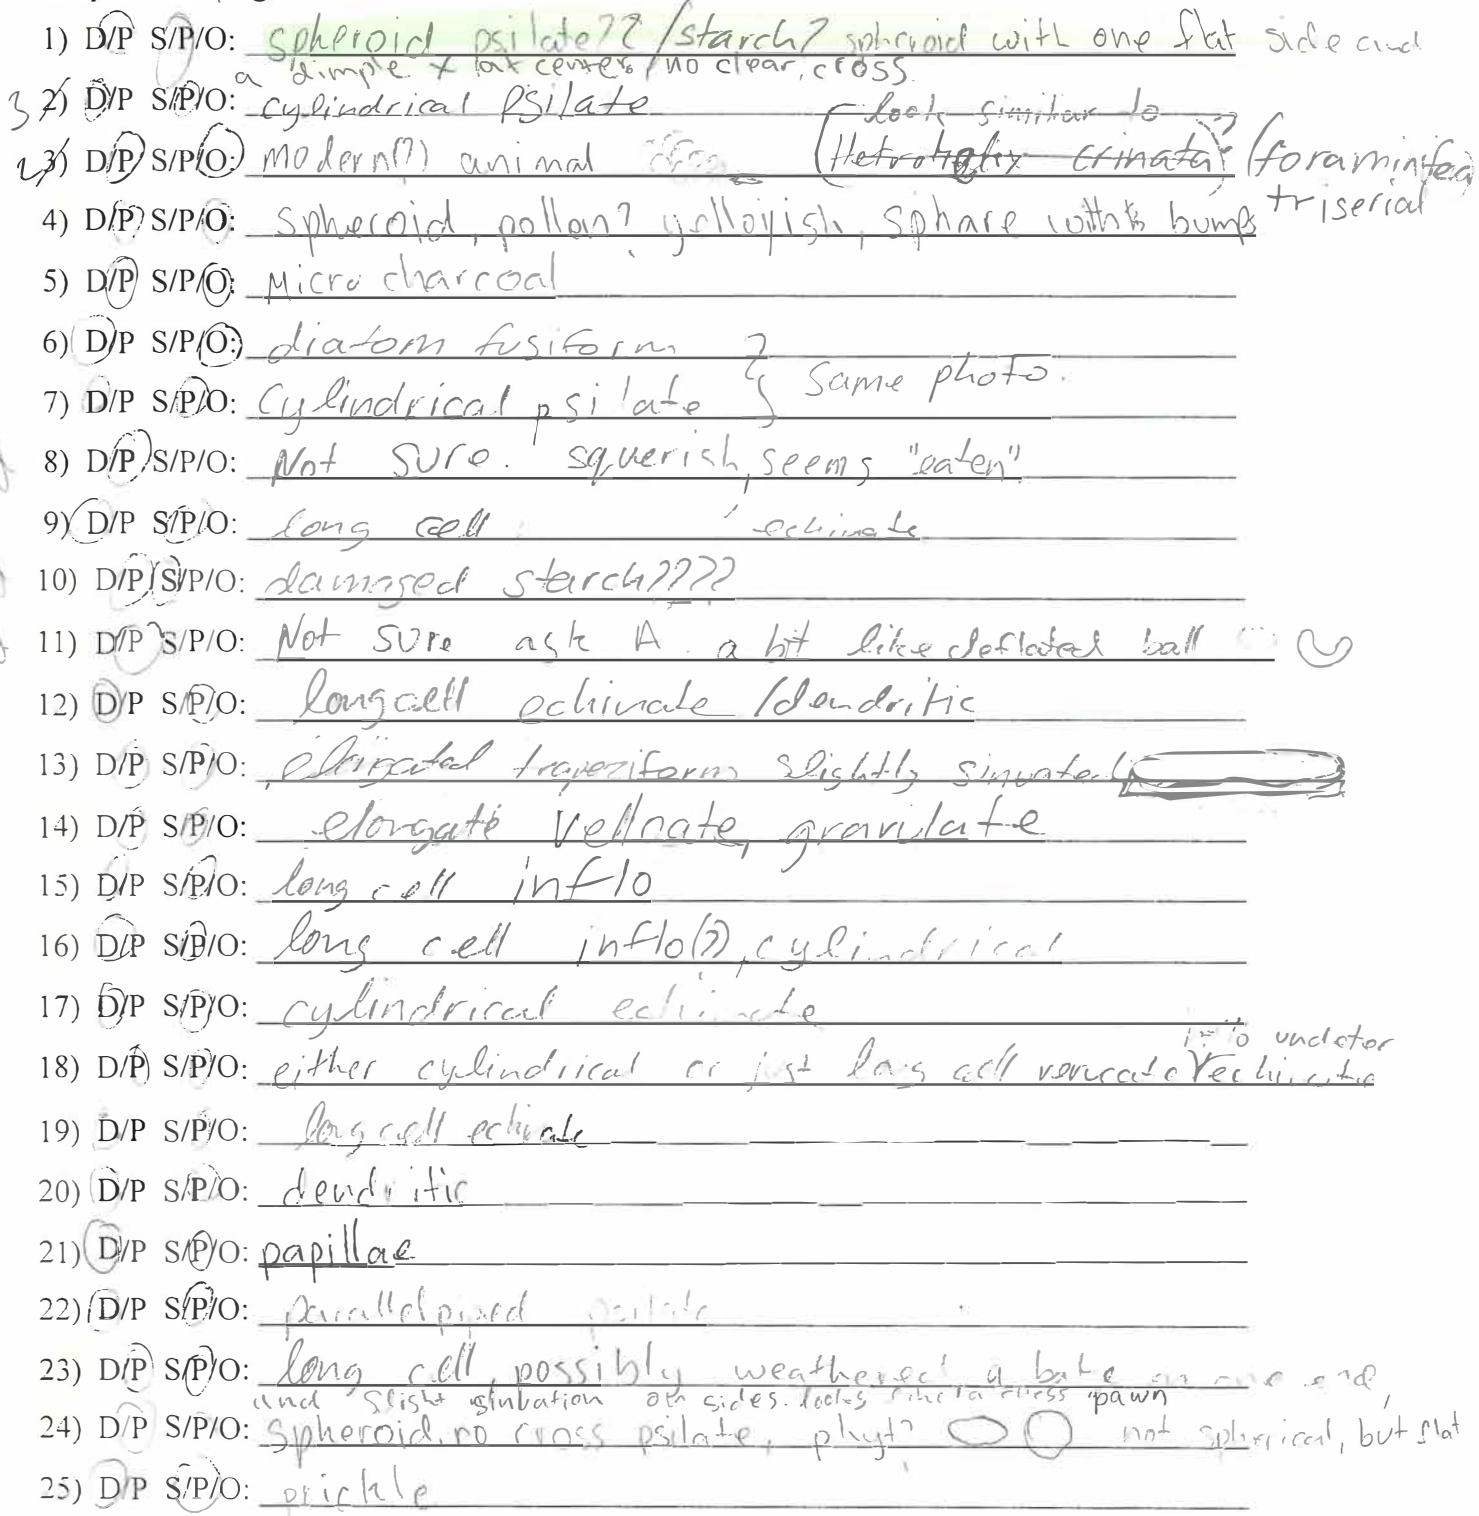 1) D/P S/P/O: spheroid psilate?? /starch? spheroid with one flat side and
a dimple x at center, no clear cross.
3 2) D/P S/P/O: cylindrical Psilate
look similar to
2 3) D/P S/P/O: modern(?) animal crinata? (foraminifea
triserial
4) D/P S/P/O: Spheroid, pollan? yelloyish, sphare with bumps
5) D/P S/P/O: Micro charcoal
6) D/P S/P/O: diatom fusiform
same photo.
7) D/P S/P/O: Cylindrical psilate
8) D/P S/P/O: Not sure. squerish, seems "eaten"
9) D/P S/P/O: long cell echinate
10) D/P S/P/O: damaged starch????
11) D/P S/P/O: Not sure ask A. a bit like deflated ball
12) D/P S/P/O: long cell echinate /dendritic
13) D/P S/P/O: trapeziform slightly sinuate
14) D/P S/P/O: elongate granulate
15) D/P S/P/O: long cell inflo
16) D/P S/P/O: long cell inflo(?), cylindrical
17) D/P S/P/O: cylindrical echinate
undeter
18) D/P S/P/O: either cylindrical or just long cell verucate echinate
19) D/P S/P/O: long cell echinate
20) D/P S/P/O: dendritic
21) D/P S/P/O: papillae
22) D/P S/P/O: psilate
23) D/P S/P/O: long cell, possibly weathered, a on one end,
and slight on sides. looks like a chess pawn
24) D/P S/P/O: Spheroid, no cross psilate, phyt? not spherical, but flat
25) D/P S/P/O: prickle